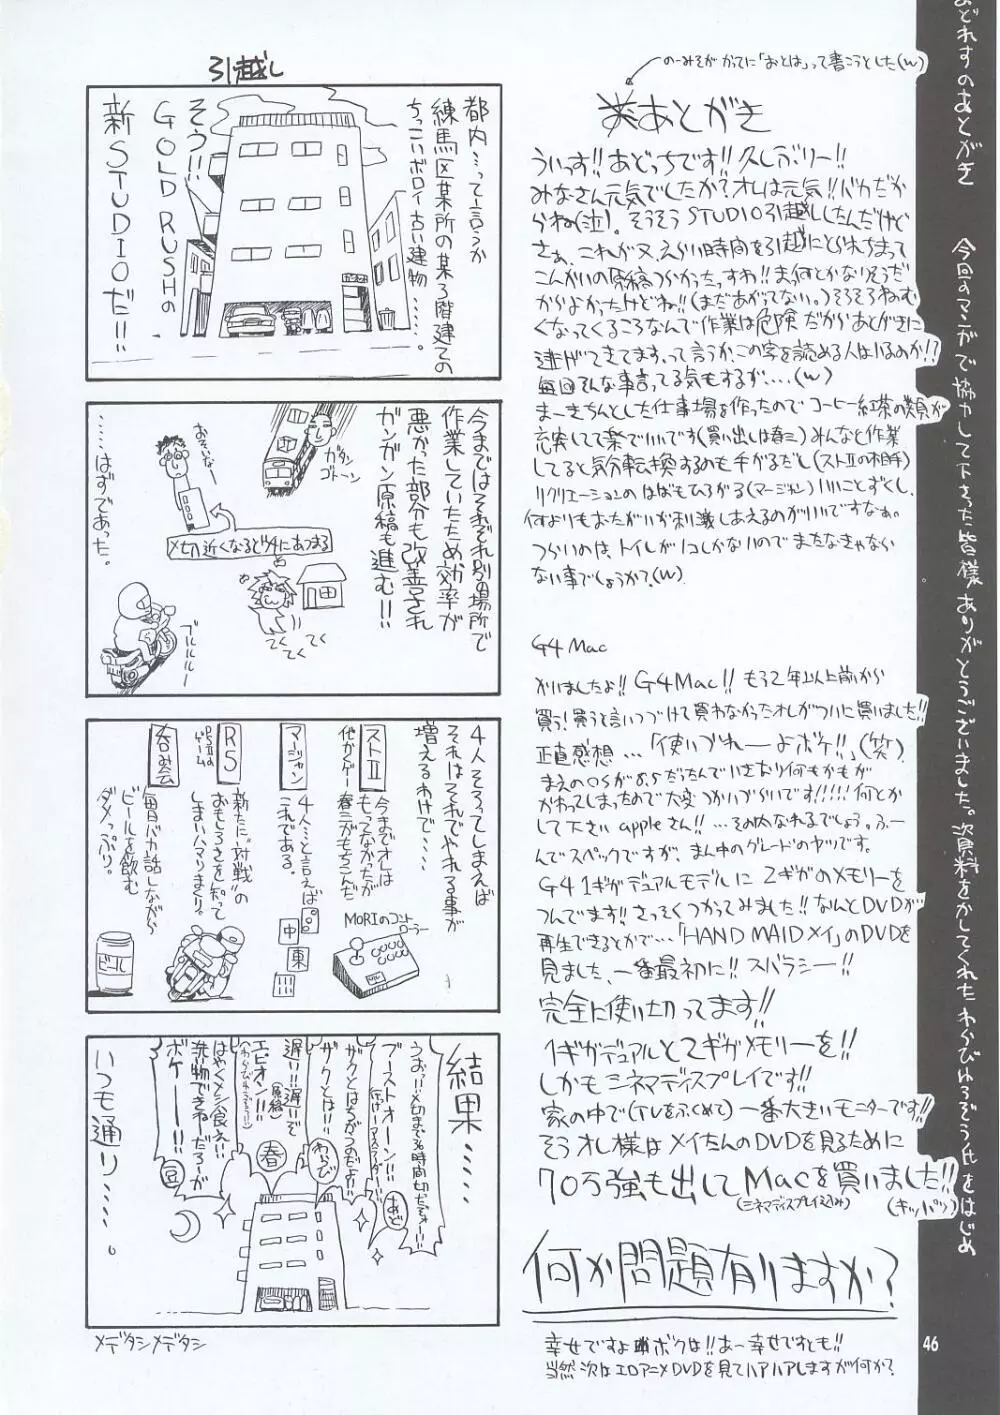 おどれすのあとがき
今回のマンガで協力して下さった皆様ありがとうございました。資料をかしてくれたわらびゅろぞう氏をはじめ
のーみそがかってに「おとは」って書こうとした(w)
あとがき
ういっす!!あどっちです!!久しぶりー!!
みなさん元気でしたか?オレは元気!!バカだか
らね(泣)。そうそうSTUDIO引越ししたんだけど
さぁ、これが又、えらい時間を引越にとられちまって
こんかいの原稿つらかったっすわ!!ま、何とかなりそうだ
からよかったけどね!!(まだあがってない。)そろそろねむ
くなってくるころなんで作業は危険だからあとがきに
逃げてきてます。って言うか、この字を読める人はいるのか!?
毎回そんな事言ってる気もするが‥‥(w)
まーきちんとした仕事場を作ったのでコーヒー紅茶の類が
充実してて楽でいいです(買い出しは春三)みんなと作業
してると気分転換するのも手がるだし(ストⅡの相手)
リクリエーションのはばもひろがる(マージャン)いいことずくし、
何よりもおたがいが刺激しあえるのがいいですなぁ。
つらいのは、トイレが1コしかないのでまたなきゃなら
ない事でしょうか?(w)
G4 Mac
かいましたよ!!G4Mac!!もう2年以上前から
買う!買うと言いつづけて買わなかったオレがついに買いました!!
正直感想…「使いづれーよボケ!!」(笑)
まえのOSが8.5だったんでいきなり何もかもが
かわってしまったので大変つかいづらいです!!!!!何とか
して下さいappleさん!!…その内なれるでしょう。ふー
んでスペックですが、まん中のグレードのヤツです。
G4 1ギガデュアルモデルに2ギガのメモリーを
つんでます!!さっそくつかってみました!!なんとDVDが
再生できるとかで…「HAND MAIDメイ」のDVDを
見ました、一番最初に!!スバラシー!!
完全に使い切ってます!!
1ギガデュアルと2ギガメモリーを!!
しかもシネマディスプレイです!!
家の中で(TVをふくめて)一番大きいモニターです!!
そうオレ様はメイたんのDVDを見るために
70万強も出してMacを買いました!!
(シネマディスプレイ込み)
(キッパリ)
何か問題有りますか?
幸せですよボクは!!あー幸せですとも!!
当然次はエロアニメDVDを見てハアハアしますが何か?
46
引越し
都内…って言うか
練馬区某所の某3階建ての
ちっこいボロイ古い建物……。
そう!!
GOLD RUSHの
新STUDIOだ!!
今まではそれぞれ別の場所で
作業していたため効率が
悪かった部分も改善され
ガンガン原稿も進む!!
ガタン
ゴトーン
おそいなー
〆切近くなるとココにあつまる
てくてくてくてく
ブルルルルー
……はずであった。
4人そろってしまえば
それはそれでやれる事が
増えるわけで‥‥
ストⅡ
他かくゲー
今までオレは
もってなかったが
春三がもちこんだ
MORIのコントローラー
マージャン
4人…と言えば
これである。
中
東
RS
PSⅡのゲーム
新たに"対戦"の
おもしろさを知って
しまいハマりまくり。
呑み会
毎日バカ話しながら
ビールを飲む
ダメっぷり。
ビール
結果‥‥‥
うおー!!〆切まで36時間切ったぞおー!!
ブーストオーン!!
あど
ザクとはちがうのだよ!!
ザクとは!!
わらび
遅い!!遅いぞ
エピオン!!
春
はやくメシ食え!!
洗い物できねーだろーが
ボケーー!!
豆
いつも通り‥‥‥。
メデタシメデタシ